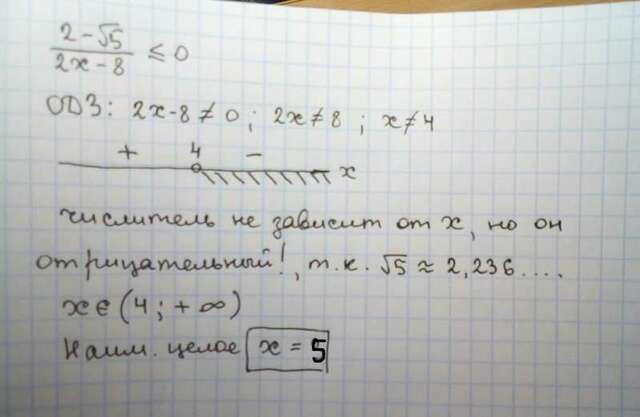 2 - √5
2x - 8 ≤ 0
ОДЗ: 2x - 8 ≠ 0 ; 2x ≠ 8 ; x ≠ 4
+ 4 − x
числитель не зависит от x, но он
отрицательный!, т.к. √5 ≈ 2,236....
x ∈ (4 ; + ∞)
Наим. целое x = 5